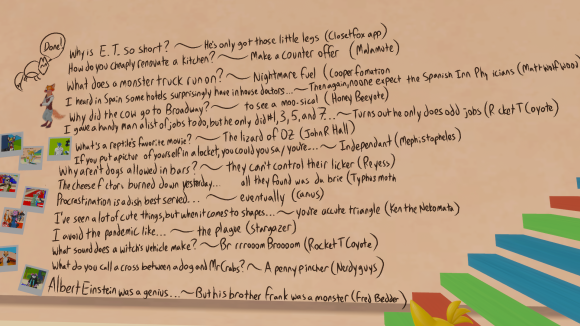 Done!
Why is E.T. so short? ~ He's only got those little legs (Closetfox app)
How do you cheaply renovate a kitchen? ~ Make a counter offer (Malamute)
What does a monster truck run on? ~ Nightmare fuel (Cooper Fomation
I heard in Spain some hotels surprisingly have in house doctors... ~ Then again, no one expect the Spanish Inn Phy icians (Matt Wolfwood)
Why did the cow go to Broadway? ~ to see a moo-sical (Honey Beeyote)
I gave a handy man a list of jobs to do, but he only did #1, 3, 5, and 7... ~ Turns out he only does odd jobs (R cket T Coyote)
What's a reptile's favorite movie? ~ The lizard of OZ (John R Hall)
If you put a pictur of yourself in a locket, you could you say you're... ~ Independant (Mephistopheles)
Why aren't dogs allowed in bars? ~ they can't control their licker (Reyess)
The cheese f ctory burned down yesterday... all they found was da brie (Typhus moth
Procrastination is a dish best served... ~ eventually (canus)
I've seen a lot of cute things, but when it comes to shapes... ~ you're accute triangle (Ken the Nekomata)
I avoid the pandemic like... ~ the plague (stargazer)
What sound does a witch's vehicle make? ~ Br rrrooom Broooom (Rocket T Coyote)
What do you call a cross between a dog and Mr Crabs? ~ A penny pincher (Nerdyguys)
Albert Einstein was a genius... ~ But his brother Frank was a monster (Fred Bedder)